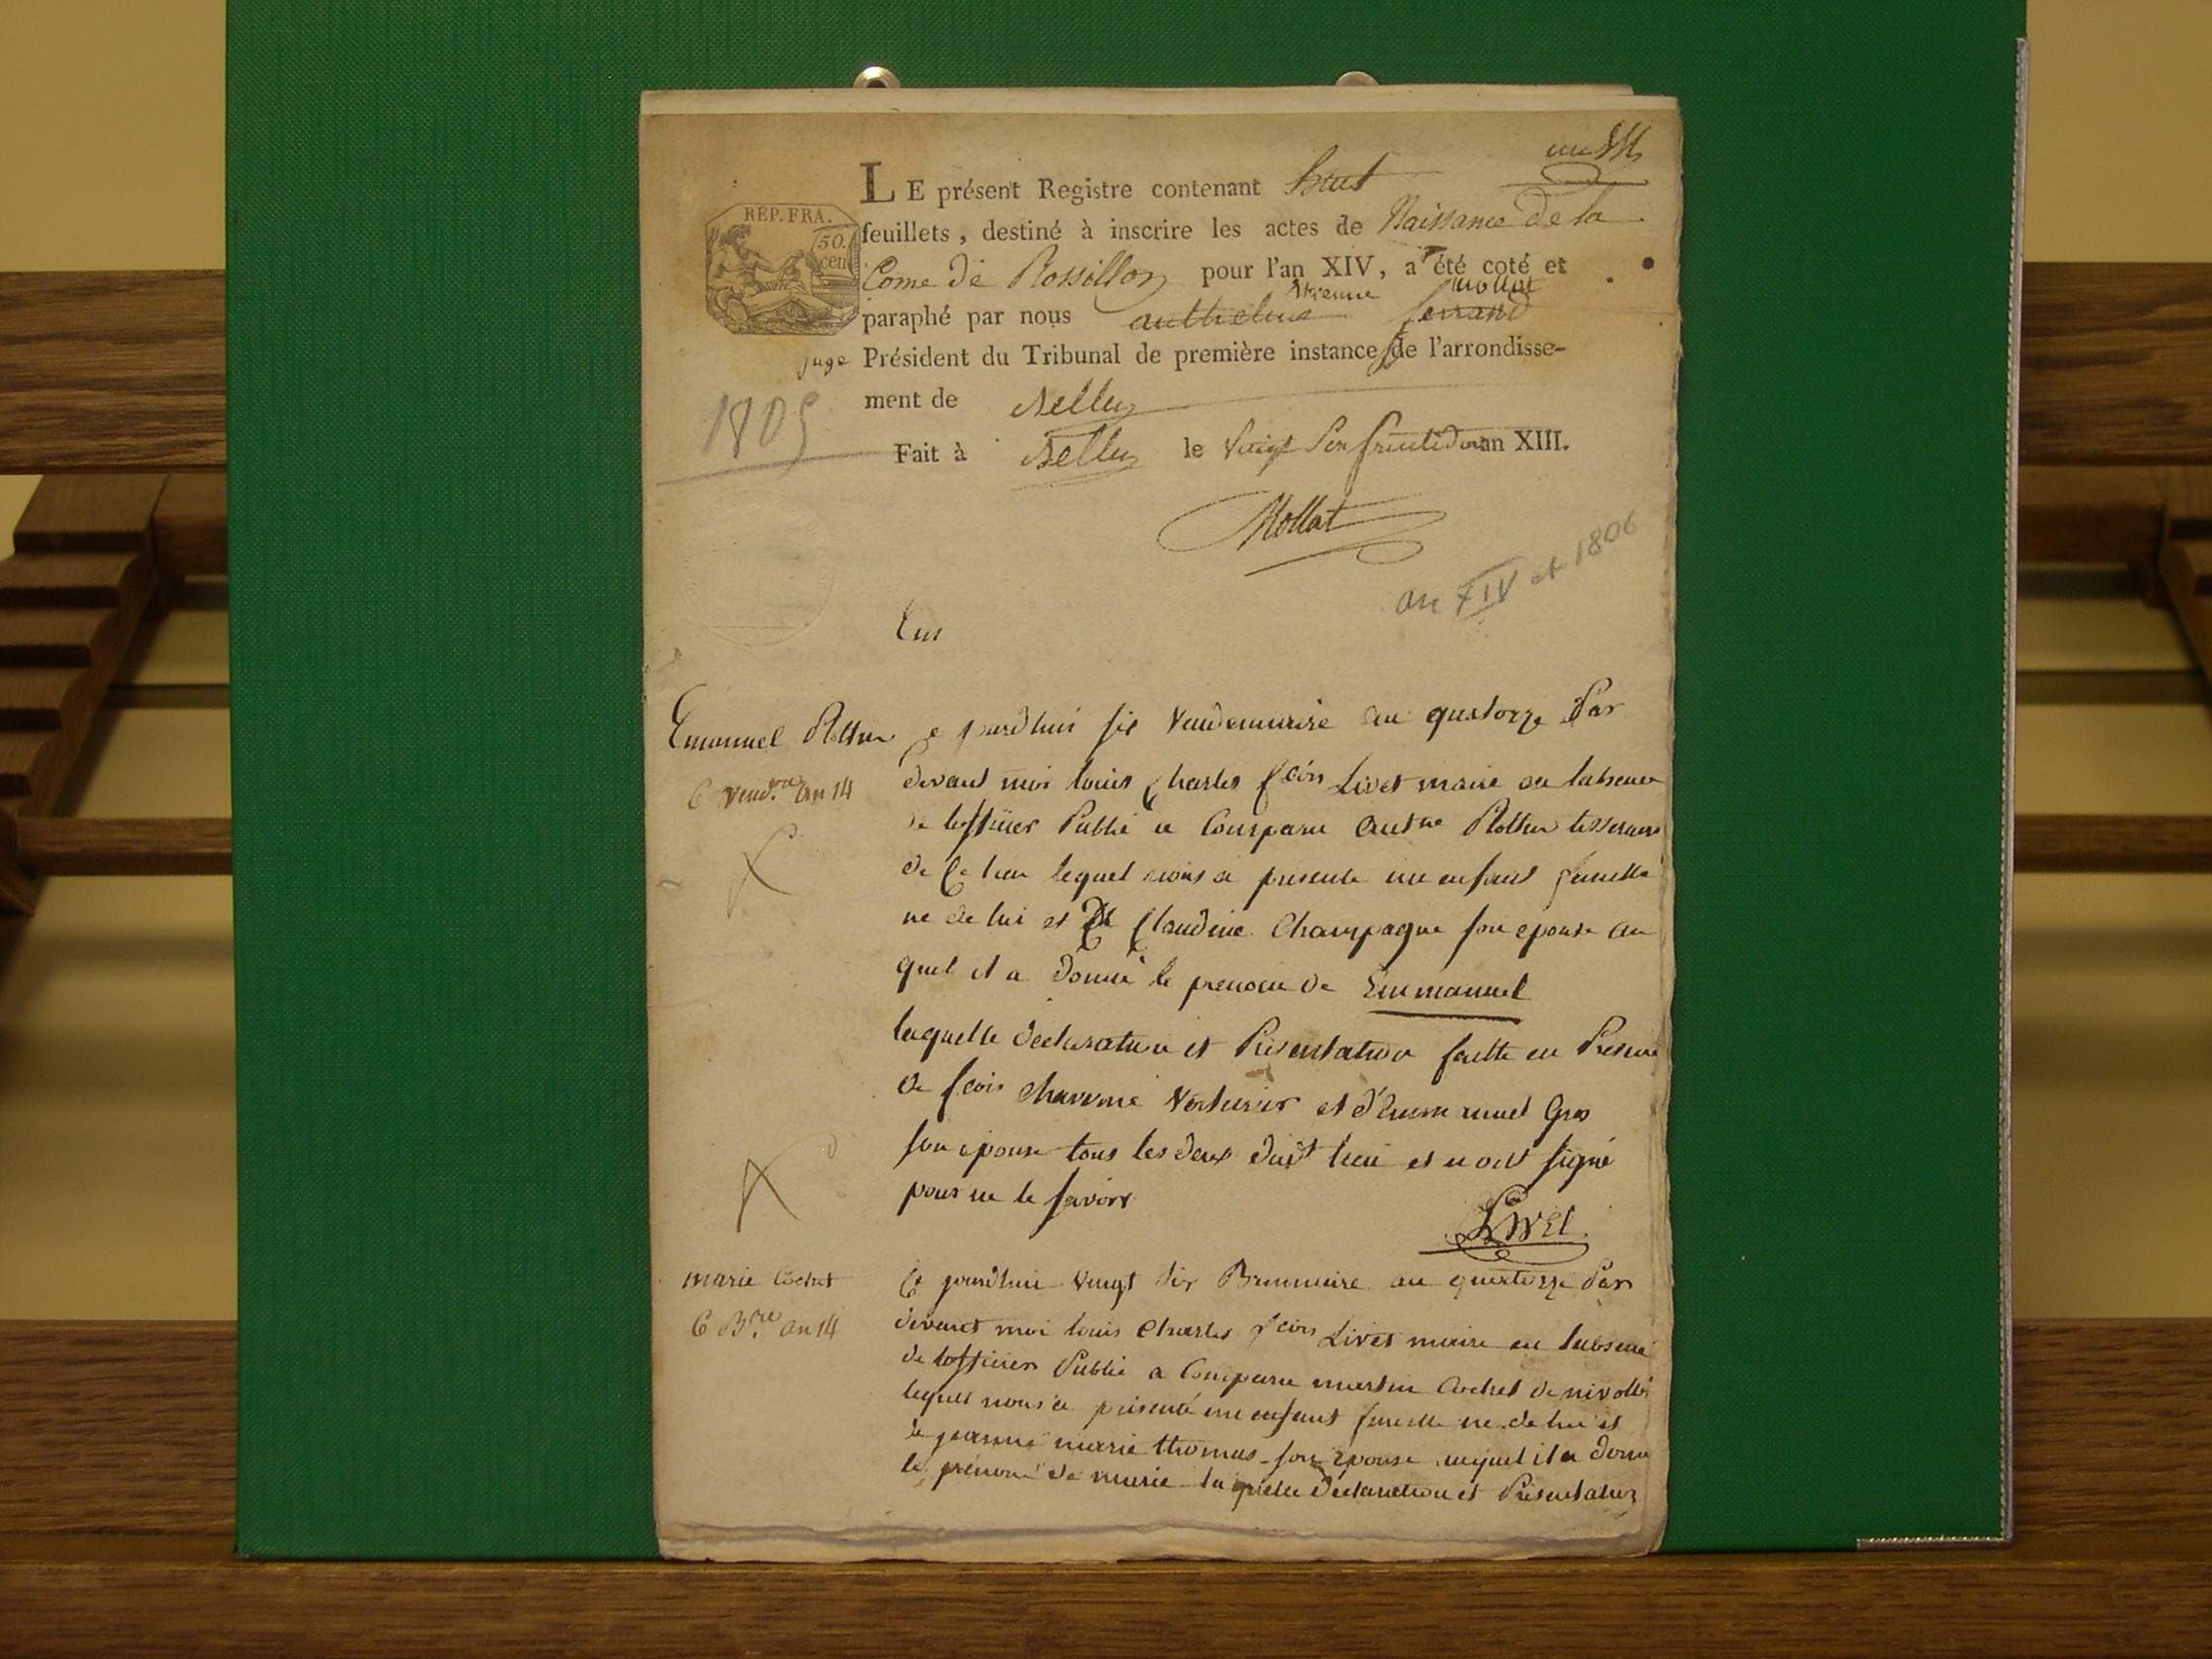 LE présent Registre contenant huit
feuillets, destiné à inscrire les actes de Naissance de la
REP. FRA.
50.
cen
Come de Rossillon pour l'an XIV, a été coté et
étienne mollat
paraphé par nous anthelme ferrand
juge Président du Tribunal de première instance de l'arrondisse-
ment de Belley
1805
Fait à Belley le Vingt six fructidor an XIII.
Mollat
an XIV et 1806
Emanuel
6 vend.re an 14
Ce jourdhui six Vendemiaire an quatorze Par
devant moi louis Charles fcois Livet maire en labsence
de lofficier Public a Comparu tisserand
de Ce lieu lequel nous a presente un enfant femelle
ne de lui et de Claudine Champagne son epouse au
quel il a donné le prenom de Emmanuel
laquelle declaration et Presentation faitte en Presence
de fcois et d'Emmanuel Gros
son epouse tous les deux dudt lieu et n ont signé
pour ne le savoir
Livet
marie Cochet
6 B.re an 14
Ce jourdhui vingt six Brumaire an quatorze Par
devant moi louis Charles fcois Livet maire en labsence
de lofficier Public a Comparu martin Cochet de
lequel nous a présenté un enfant femelle ne de lui et
de jeanne marie thomas son epouse auquel il a donné
le prénom de marie laquelle declaration et Presentation